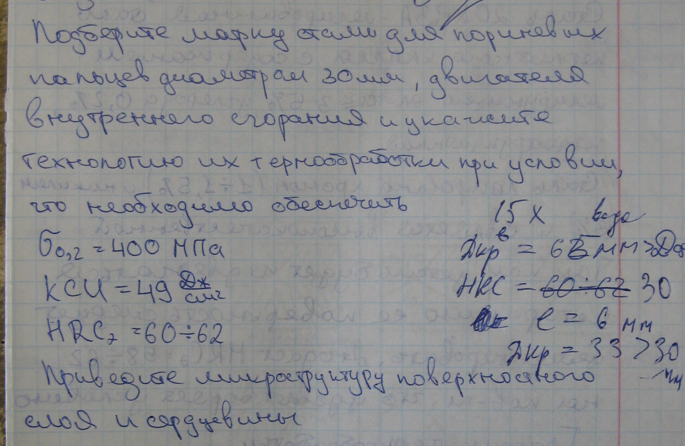 Подберите марку стали для поршневых
пальцев диаметром 30мм, двигателя
внутреннего сгорания и укажите
технологию их термообработки при условии,
что необходимо обеспечить
15 Х вода
σ0,2 = 400 МПа
KCU = 49 Дж/см2
HRCэ = 60÷62
Дкр в = 65 мм > Дф
HRC = 60-62 30
l = 6 мм
Дкр = 33 > 30
мм
Приведите микроструктуру поверхностного
слоя и сердцевины